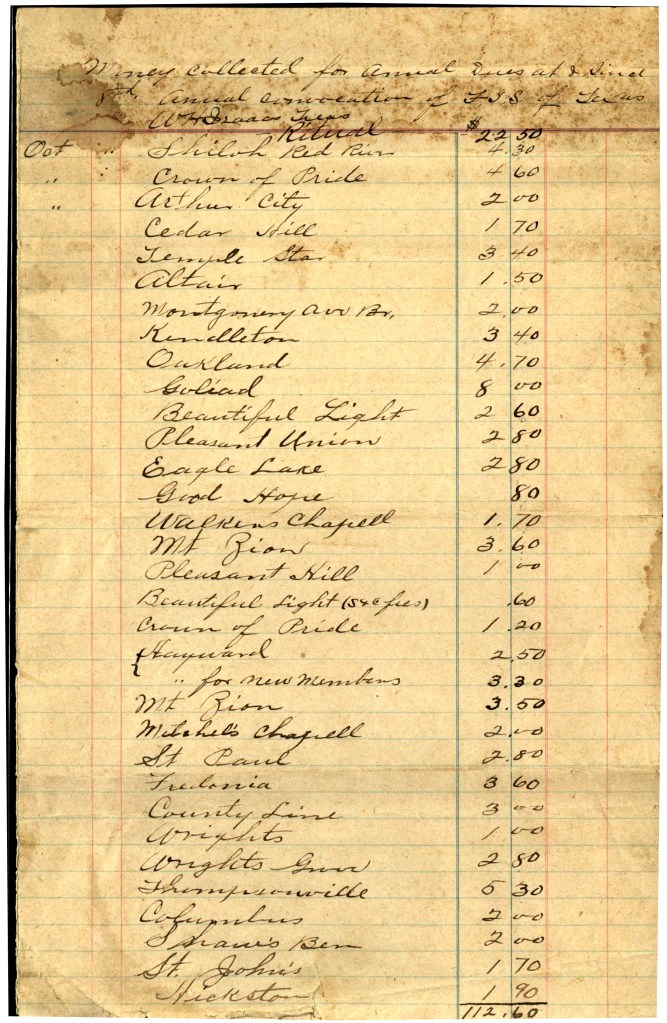 Money collected for Annual Dues at &
8th Annual Convocation of F.I.S of Texas
WH Isaacs Treas
Ritual $ 22 50
Oct " Shiloh Red River 4.30
" : Crown of Pride 4 60
" Arthur City 2 00
Cedar Hill 1 70
Temple Star 3 40
Altair 1.50
Montgomery Ave Br. 2.00
Kendleton 3 40
Oakland 4.70
Goliad 8 00
Beautiful Light 2 60
Pleasant Union 2 80
Eagle Lake 2 80
Good Hope 80
Walkens Chapell 1.70
Mt Zion 3.60
Pleasant Hill 1 00
Beautiful Light (S & C fees) .60
Crown of Pride 1.20
{ Hayward 2.50
" for new members 3.30
Mt Zion 3.50
Mitchel's Chapell 2.00
St Paul 2.80
Fredonia 3 60
County Line 3 00
Wrights 1 00
Wrights Grov 2 80
Thompsonville 5 30
Columbus 2 00
Shaw's Ben 2 00
St. John's 1 70
Hickston 1 90
112.60